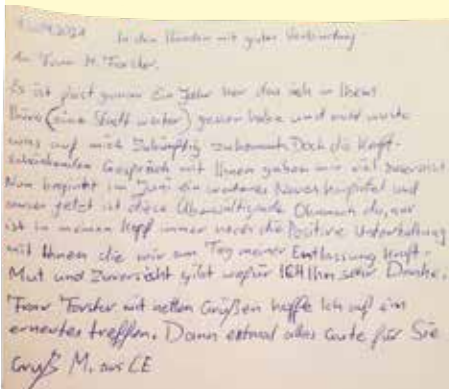 In den Händen mit guter Verbindung
An Frau M. Forster.
Es ist fast genau Ein Jahr her das ich in Ihrem
Büro (eine Stadt weiter) gesessen habe und nicht wusste
was auf mich Zukünftig zukommt. Doch die kraft-
Gespräch mit Ihnen gaben mir viel Zuversicht
Nun beginnt im Juni ein weiteres Neues Kapitel und
jetzt ist diese Überwältigende Ohnmacht da, nur
ist in meinem Kopf immer noch die Positive Unterhaltung
mit Ihnen die mir am Tag meiner Entlassung kraft-
Mut und Zuversicht gibt wofür ICH Ihn sehr Danke.
Frau Forster mit netten Grüßen hoffe Ich auf ein
erneutes treffen. Dann erstmal alles Gute für Sie
Gruß M. aus CE